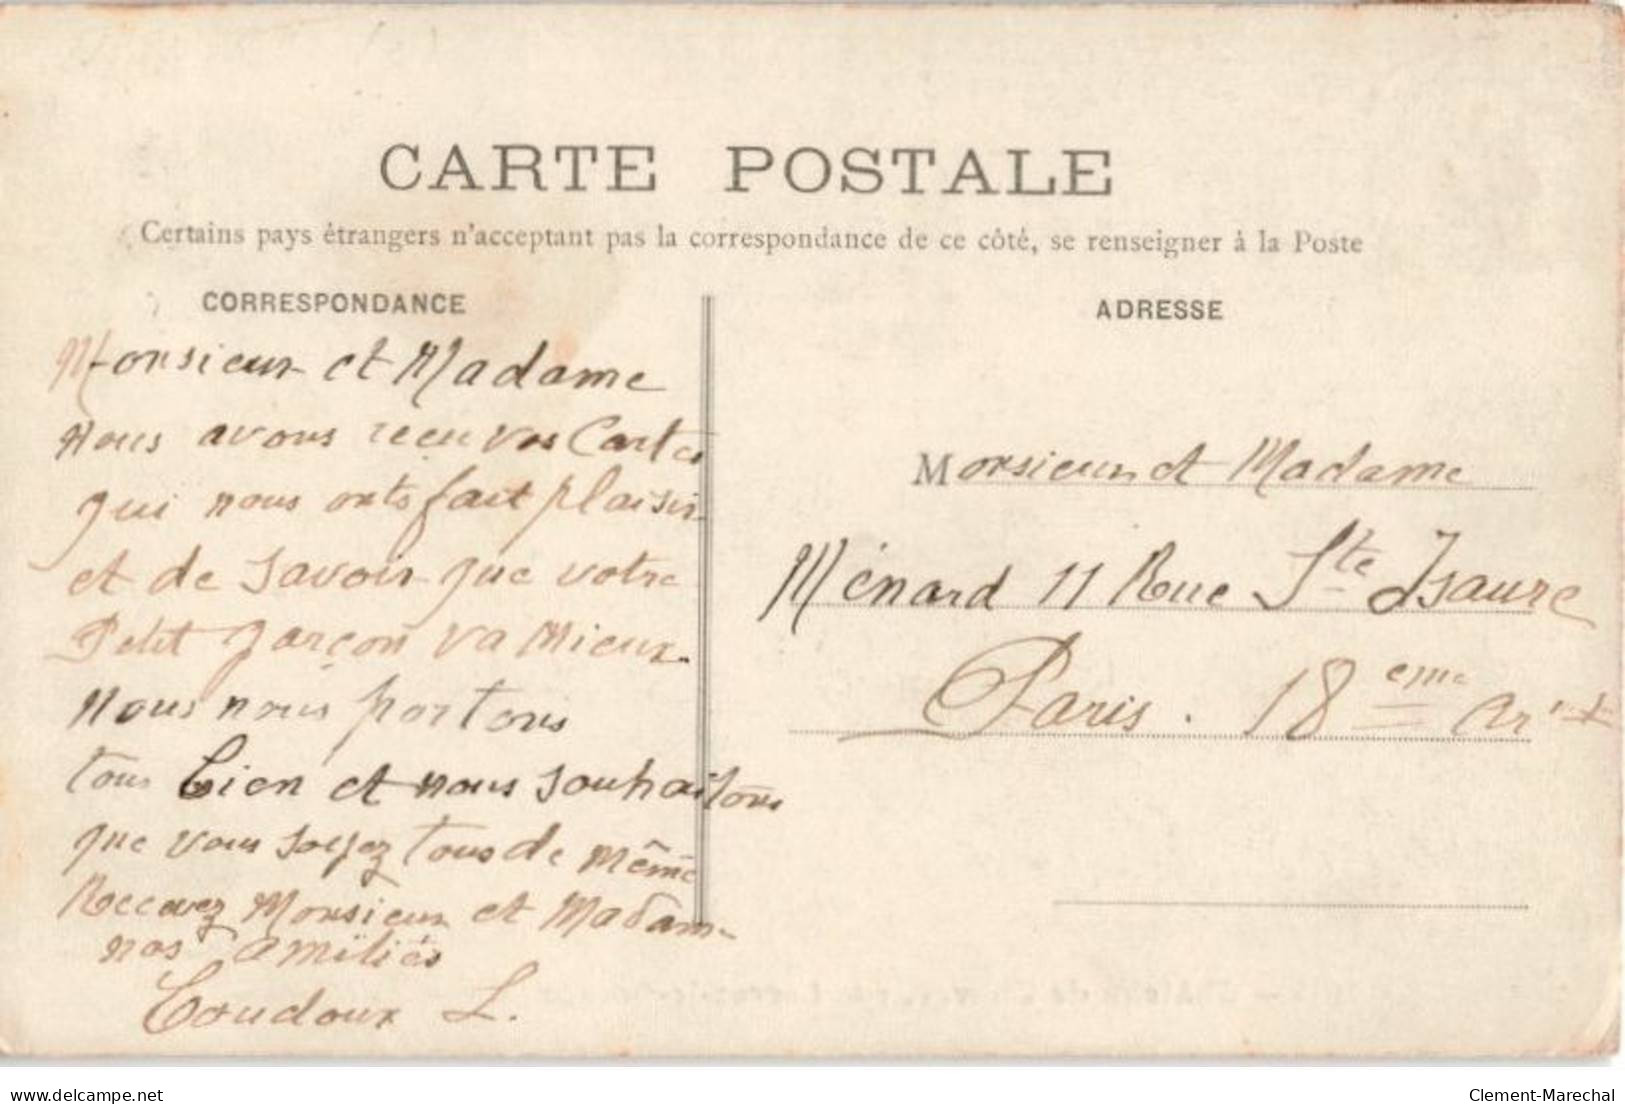 CARTE POSTALE
Certains pays étrangers n'acceptant pas la correspondance de ce côté, se renseigner à la Poste
CORRESPONDANCE
Monsieur et Madame
nous avons recu vos Cartes
qui nous onts fait plaisir
et de savoir que votre
Petit garçon va Mieux.
nous nous portons
tous bien et nous souhaitons
que vous soyez tous de même
Recevez Monsieur et Madame
nos amitiés
Coudoux L.
ADRESSE
Monsieur et Madame
Ménard 11 Rue Ste Isaure
Paris. 18eme Arrt
delcampe.net
Clement-Marechal